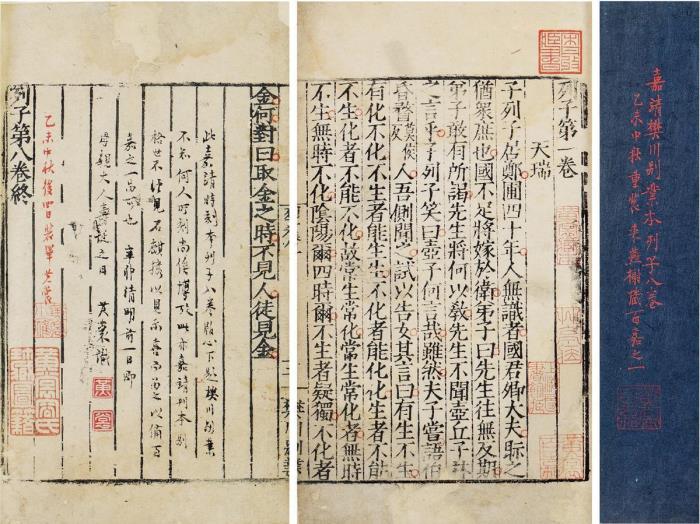 嘉靖樊川別業本列子八卷
乙未中秋重裝 來燕榭藏百嘉之一
列子第一卷
天瑞
子列子居鄭圃四十年人無識者國君卿大夫眎之
猶衆庶也國不足將嫁於衛弟子曰先生往無反期
弟子敢有所謁先生將何以敎先生不聞壺丘子林
之言乎子列子笑曰壺子何言哉雖然夫子嘗語伯
昏瞀莫侯反人吾側聞之試以告女其言曰有生不生
有化不化不生者能生生不化者能化化生者不能
不生化者不能不化故常生常化常生常化者無時
不生無時不化陰陽爾四時爾不生者疑獨不化者
樊川別業
金何對曰取金之時不見人徒見金
此嘉靖時刻本列子八卷版心下題樊川別業
不知何人時刻尚 此亦嘉靖刻本別
以備百
嘉之一而已 辛卯清明前一日即
母親大人壽誕之日 黃裳識
乙未中秋後四日裝畢 黃裳
列子第八卷終